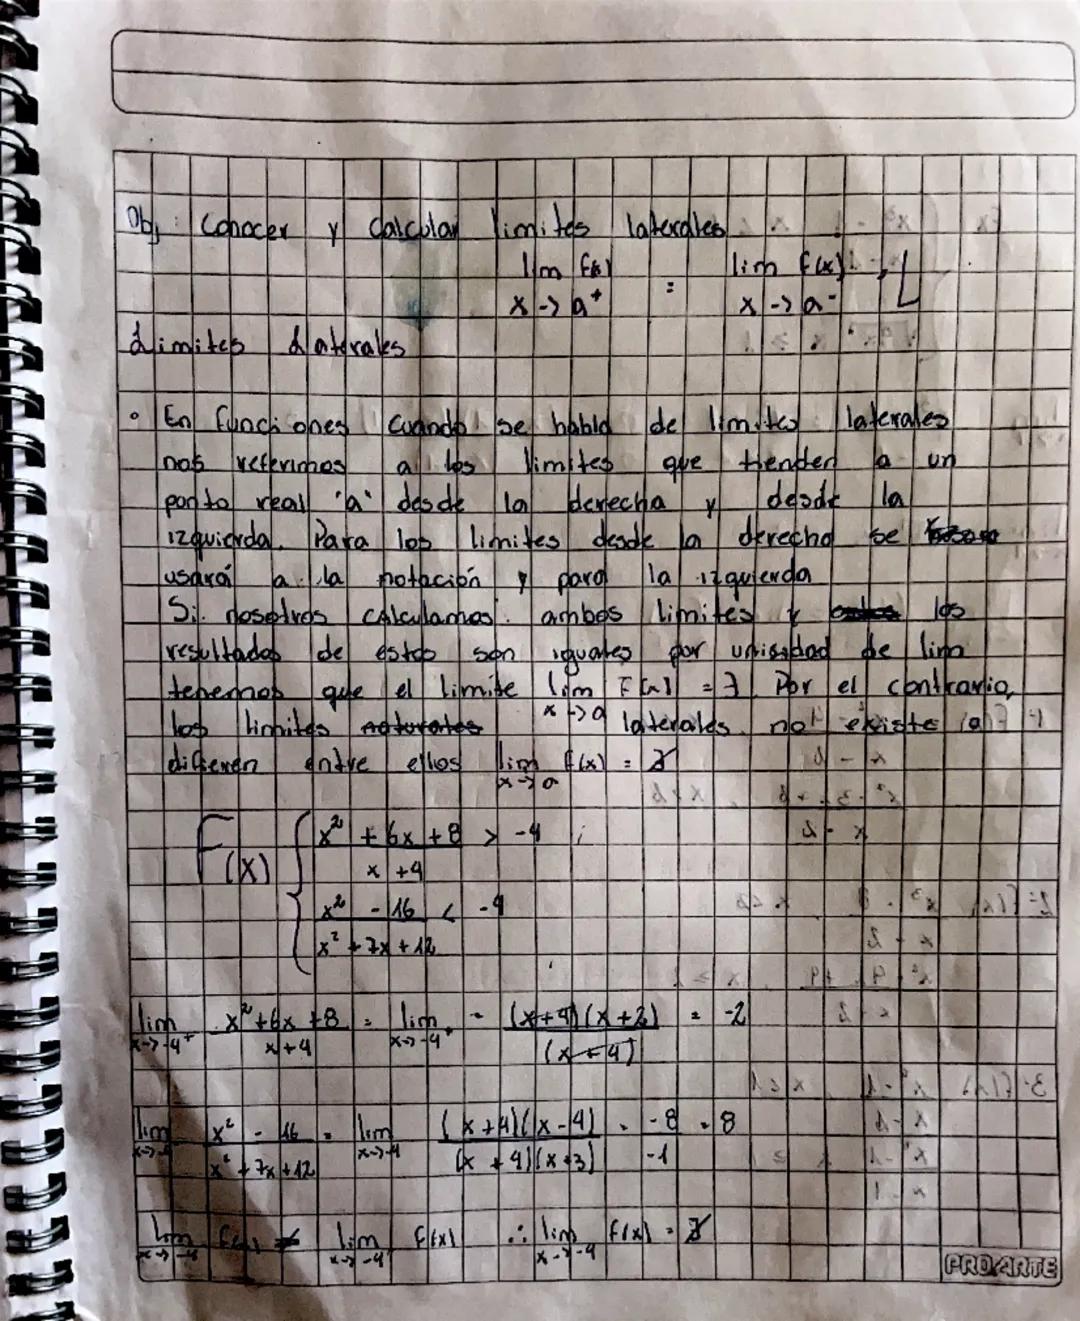 Obj: Conocer y Calcular limites laterales
lim f(x) = lim f(x) = L
x -> a⁺ x -> a⁻
Limites Laterales
• En funciones cuando se habla de limites laterales
nos referimos a los limites que tienden a un
punto real 'a' desde la derecha y desde la
izquierda. Para los limites desde la derecha se
usará a la notación y para la izquierda
Si nosotros calculamos ambos limites y los
resultados de estos son iguales por unisidad de lim
tenemos que el limite lim F(x) = ∃ Por el contrario,
x -> a
los limites naturales laterales no existe o
difieren entre ellos lim f(x) = ∄
x -> a
F(x) { x² + 6x + 8 > -4 ;
x + 4
x² - 16 < -4
x² + 7x + 12
lim x² + 6x + 8 = lim = (x+4)(x+2) = -2
x -> -4⁺ x + 4 x -> -4⁺ (x+4)
lim x² - 16 = lim (x+4)(x-4) = -8 = 8
x -> -4 x² + 7x + 12 x -> -4 (x+4)(x+3) -1
lim f(x) ≠ lim f(x) ∴ lim f(x) = ∄
x -> -4 x -> -4 x -> -4
PROARTE